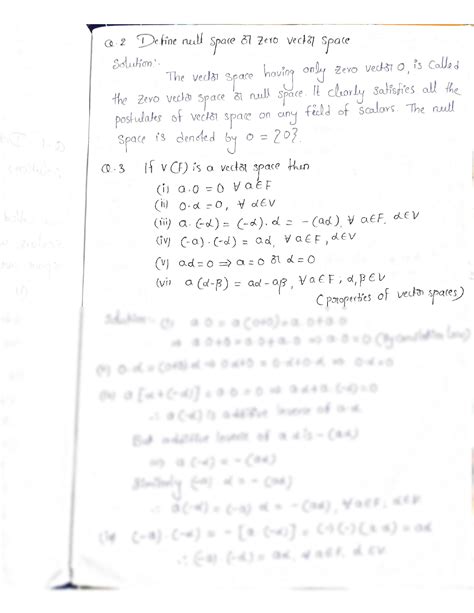 Q.2 Define null space or zero vector space
Solution:-
The vector space having only zero vector 0, is called
the zero vector space or null space. It clearly satisfies all the
postulates of vector space on any field of scalars. The null
space is denoted by 0 = {0}.
Q.3 If V(F) is a vector space then
(i) a.0 = 0 ∀ a∈F
(ii) 0.α = 0, ∀ α∈V
(iii) a.(-α) = (-a).α = -(aα), ∀ a∈F, α∈V
(iv) (-a).(-α) = aα, ∀ a∈F, α∈V
(v) aα = 0 ⇒ a = 0 or α = 0
(vi) a(α-β) = aα - aβ, ∀ a∈F; α,β∈V
(properties of vector spaces)
Solution:- (i) a.0 = a(0+0) = a.0 + a.0
⇒ a.0 + 0 = a.0 + a.0 ⇒ a.0 = 0
0.α = (0+0)α ⇒ 0.α + 0 = 0.α + 0.α ⇒ 0.α = 0
a[α + (-α)] = a.0 = 0 ⇒ aα + a.(-α) = 0
∴ a(-α) is additive inverse of a.α
But additive inverse of aα is -(aα)
⇒ a(-α) = -(aα)
Similarly (-a)α = -(aα)
∴ a(-α) = (-a)α = -(aα), ∀ a∈F, α∈V
(-a).(-α) = -[a.(-α)] = aα
∴ (-a).(-α) = aα, ∀ a∈F, α∈V